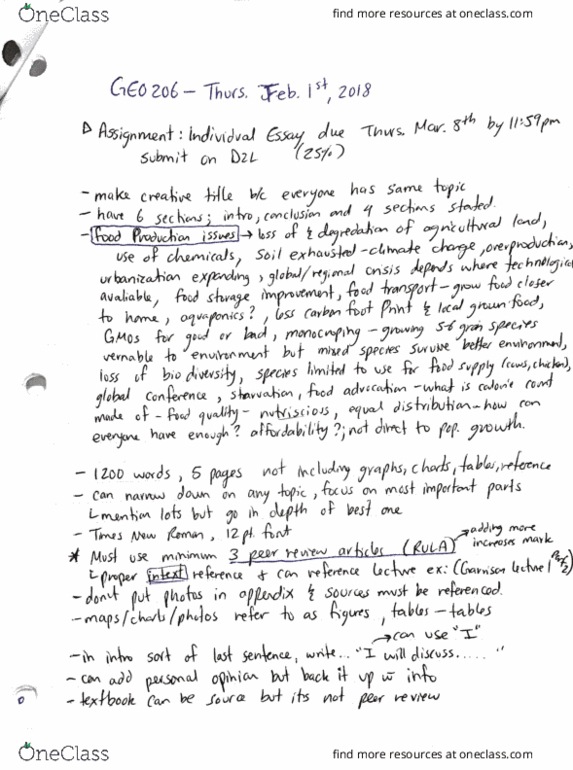 OneClass
find more resources at oneclass.com
GEO 206 - Thurs. Feb. 1st, 2018
Assignment: Individual Essay due Thurs. Mar. 8th by 11:59pm
submit on D2L (25%)
- make creative title b/c everyone has same topic
- have 6 sections; intro, conclusion and 4 sections stated.
- Food Production issues → loss of & degredation of agricultural land,
use of chemicals, soil exhausted - climate change, overproduction,
urbanization expanding, global/regional crisis depends where technological
avaliable, food storage improvement, food transport - grow food closer
to home, aquaponics?, less carbon foot print & local grown food,
GMOs for good or bad, monocroping - growing 5-6 grain species
vernable to environment but mixed species survive better environment,
loss of bio diversity, species limited to use for food supply (cows, chicken),
global conference, starvation, food advocation - what is calorie count
made of - food quality - nutriscious, equal distribution - how can
everyone have enough? affordability?; not direct to pop. growth.
- 1200 words, 5 pages not including graphs, charts, tables, reference
- can narrow down on any topic, focus on most important parts
↳ mention lots but go in depth of best one
- Times New Roman, 12pt. font
* Must use minimum 3 peer review articles (RULA) → adding more increases mark
↳ proper intext reference & can reference lecture ex: (Garrison lecture 1
- don't put photos in appendix & sources must be referenced.
- maps/charts/photos refer to as figures, tables - tables
→ can use "I"
- in intro sort of last sentence, write... "I will discuss..... "
- can add personal opinion but back it up w info
- textbook can be source but its not peer review
OneClass
find more resources at oneclass.com